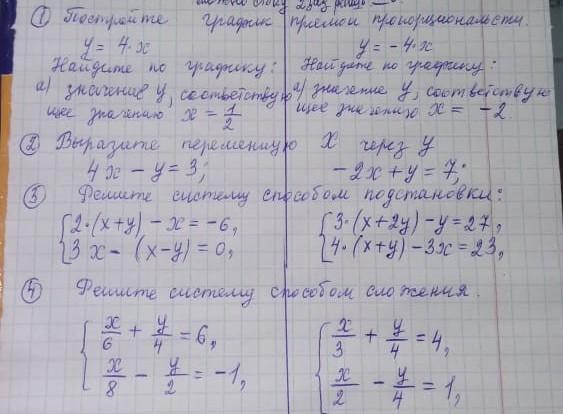 ① Постройте график прямой пропорциональности.
y = 4·x
y = -4·x
Найдите по графику:
Найдите по графику:
а) значение y, соответствую
щее значению x = 1/2
а) значение y, соответствую
щее значению x = -2.
② Выразите переменную x через y
4x - y = 3;
-2x + y = 7;
③ Решите систему способом подстановки:
{2·(x+y) - x = -6,
3x - (x-y) = 0,
{3·(x+2y) - y = 27,
4·(x+y) - 3x = 23,
④ Решите систему способом сложения.
{x/6 + y/4 = 6,
x/8 - y/2 = -1,
{x/3 + y/4 = 4,
x/2 - y/4 = 1,